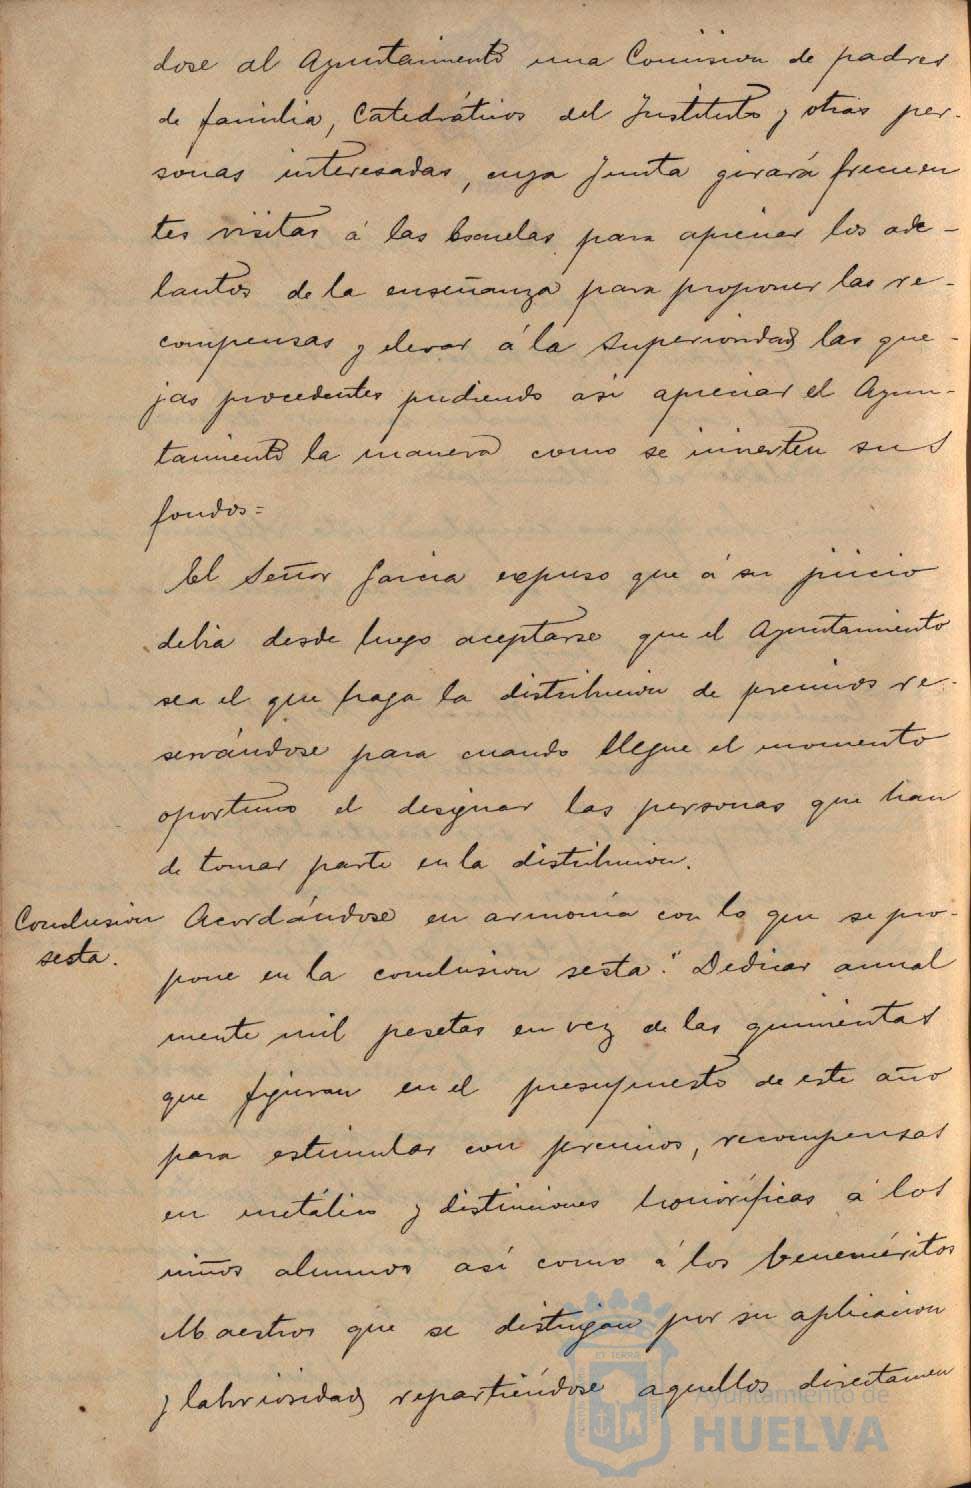 dose al Ayuntamiento una Comision de padres
de familia, Catedráticos del Instituto y otras per-
sonas interesadas, cuya Junta girará frecuen
tes visitas á las Escuelas para apreciar los ade-
lantos de la enseñanza para proponer las re-
compensas y elevar á la Superioridad las que-
jas procedentes pudiendo asi apreciar el Ayun-
tamiento la manera como se invierten sus
fondos=
El Señor Garcia expuso que á su juicio
debia desde luego aceptarse que el Ayuntamiento
sea el que haga la distribucion de premios re-
servándose para cuando llegue el momento
oportuno el designar las personas que han
de tomar parte en la distribucion.
Conclusion
sesta.
Acordándose en armonia con lo que se pro-
pone en la conclusion sesta: "Dedicar anual
mente mil pesetas en vez de las quinientas
que figuran en el presupuesto de este año
para estimular con premios, recompensas
en metálico y distinciones honoríficas á los
niños alumnos así como á los beneméritos
Maestros que se distingan por su aplicacion
y laboriosidad repartiéndose aquellos directamen
ET TERRÆ
Ayuntamiento de
HUELVA